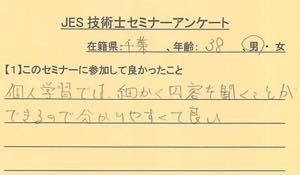 JES 技術士セミナーアンケート
在籍県:千葉、年齢:38 男・女
【1】このセミナーに参加して良かったこと
個人学習では、細かく内容を聞くことが
できるので分かりやすくて良い